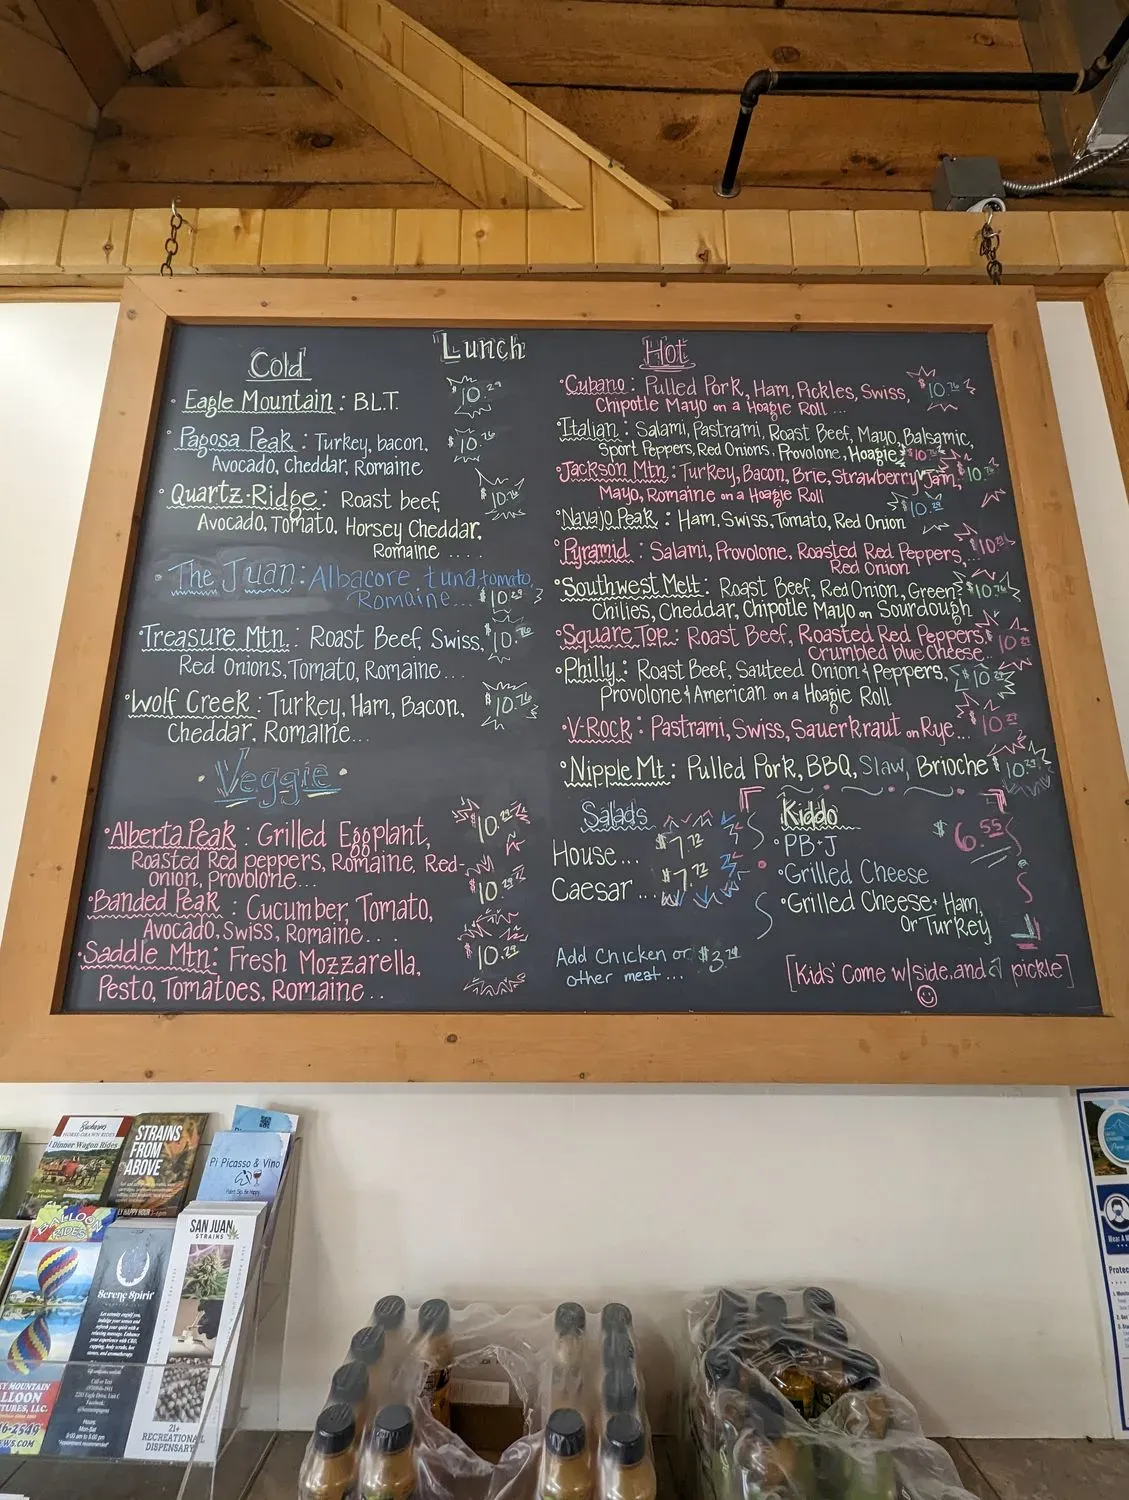 "Lunch
Cold
Eagle Mountain: B.L.T. $10.29
Pagosa Peak: Turkey, bacon, $10.76
Avocado, Cheddar, Romaine
Quartz-Ridge: Roast beef, $10.76
Avocado, Tomato, Horsey Cheddar,
Romaine ....
The Juan: Albacore tuna, tomato,
Romaine... $10.29
Treasure Mtn.: Roast Beef, Swiss, $10.76
Red Onions, Tomato, Romaine...
Wolf Creek: Turkey, Ham, Bacon, $10.76
Cheddar, Romaine...
Veggie
Alberta Peak: Grilled Eggplant, $10.29
Roasted Red peppers, Romaine, Red-
onion, Provolone...
Banded Peak: Cucumber, Tomato, $10.29
Avocado, Swiss, Romaine...
Saddle Mtn: Fresh Mozzarella, $10.29
Pesto, Tomatoes, Romaine...
Hot
Cubano: Pulled Pork, Ham, Pickles, Swiss, $10.76
Chipotle Mayo on a Hoagie Roll ...
Italian: Salami, Pastrami, Roast Beef, Mayo, Balsamic,
Sport Peppers, Red Onions, Provolone, Hoagie $10.76
Jackson Mtn: Turkey, Bacon, Brie, Strawberry Jam, $10.76
Mayo, Romaine on a Hoagie Roll
Navajo Peak: Ham, Swiss, Tomato, Red Onion $10.29
Pyramid: Salami, Provolone, Roasted Red Peppers, $10.29
Red Onion
Southwest Melt: Roast Beef, Red Onion, Green $10.76
Chilies, Cheddar, Chipotle Mayo on Sourdough
Square Top: Roast Beef, Roasted Red Peppers, $10.29
Crumbled blue Cheese...
Philly: Roast Beef, Sauteed Onion & Peppers, $10.29
Provolone & American on a Hoagie Roll
V-Rock: Pastrami, Swiss, Sauerkraut on Rye... $10.29
Nipple Mt: Pulled Pork, BBQ, Slaw, Brioche $10.29
Salads
House... $7.72
Caesar... $7.72
Add Chicken or $3.29
other meat...
Kiddo
$6.55
PB+J
Grilled Cheese
Grilled Cheese+ Ham,
Or Turkey
[Kids' Come w/side, and a pickle]
HORSE-DRAWN RIDES
Dinner Wagon Rides
STRAINS
FROM
ABOVE
Pi Picasso & Vino
Paint. Sip. Be Happy.
BALLOON
RIDES
Serene Spirit
SAN JUAN
STRAINS
21+
RECREATIONAL
DISPENSARY